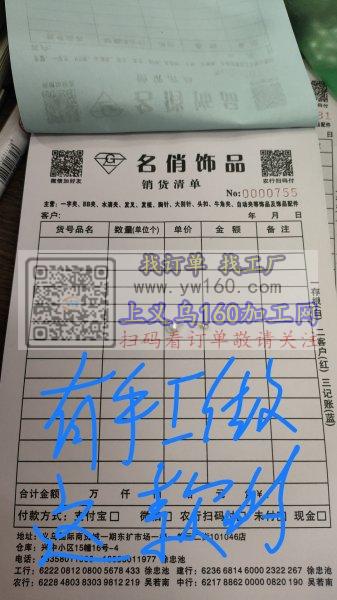 微信加好友
名俏饰品
销货清单
农行扫码付
No:0000755
主营：一字夹、BB夹、水滴夹、发叉、发梳、胸针、大别针、头扣、牛角夹、自动夹等饰品及饰品配件
客户：
年 月 日
货号品名 数量(单位个) 单价 金额 备注
找订单 找工厂
www.yw160.com
上义乌160加工网
扫码看订单敬请关注
二客户(红) 三记账(蓝)
有手工做
合计金额 万 仟 元 ¥
付款方式：支付宝□ 农行扫码 未付□ 现金□
兴中小区15幢16号-4
工行：6222 0812 0800 5678 433 徐忠池
建行：6236 6814 6000 2322 267 徐忠池
农行：6228 4803 8083 9812 019 吴若南
中行：6217 8662 0000 0820 190 吴若南